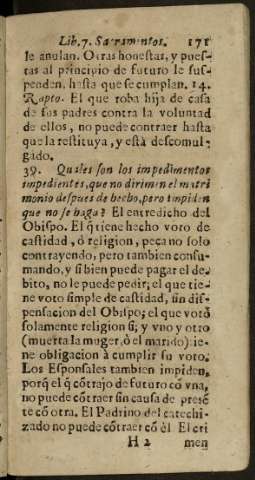 Lib. 7. Sacramentos. 171
le anulan. Otras honestas, y pues-
tas al principio de futuro le sus-
penden, hasta que se cumplan. 14.
Rapto. El que roba hija de casa
de sus padres contra la voluntad
de ellos, no puede contraer hasta
que la restituya, y està descomul-
gado.
39. Quales son los impedimentos
impedientes, que no dirimen el matri
monio despues de hecho, pero impiden
que no se haga? El entredicho del
Obispo. El q̃ tiene hecho voto de
castidad, ò religion, peca no solo
contrayendo, pero tambien consu-
mando, y si bien puede pagar el de-
bito, no le puede pedir; el que tie-
ne voto simple de castidad, sin dis-
pensacion del Obispo; el que votò
solamente religion si; y vno y otro
(muerta la muger, ò el marido) tie-
ne obligacion à cumplir su voto.
Los Esponsales tambien impiden,
porq̃ el q̃ cõtrajo de futuro cõ vna,
no puede cõtraer sin causa de presẽ
te cõ otra. El Padrino del catechi-
zado no puede cõtraer cõ èl. El cri
H 2 men